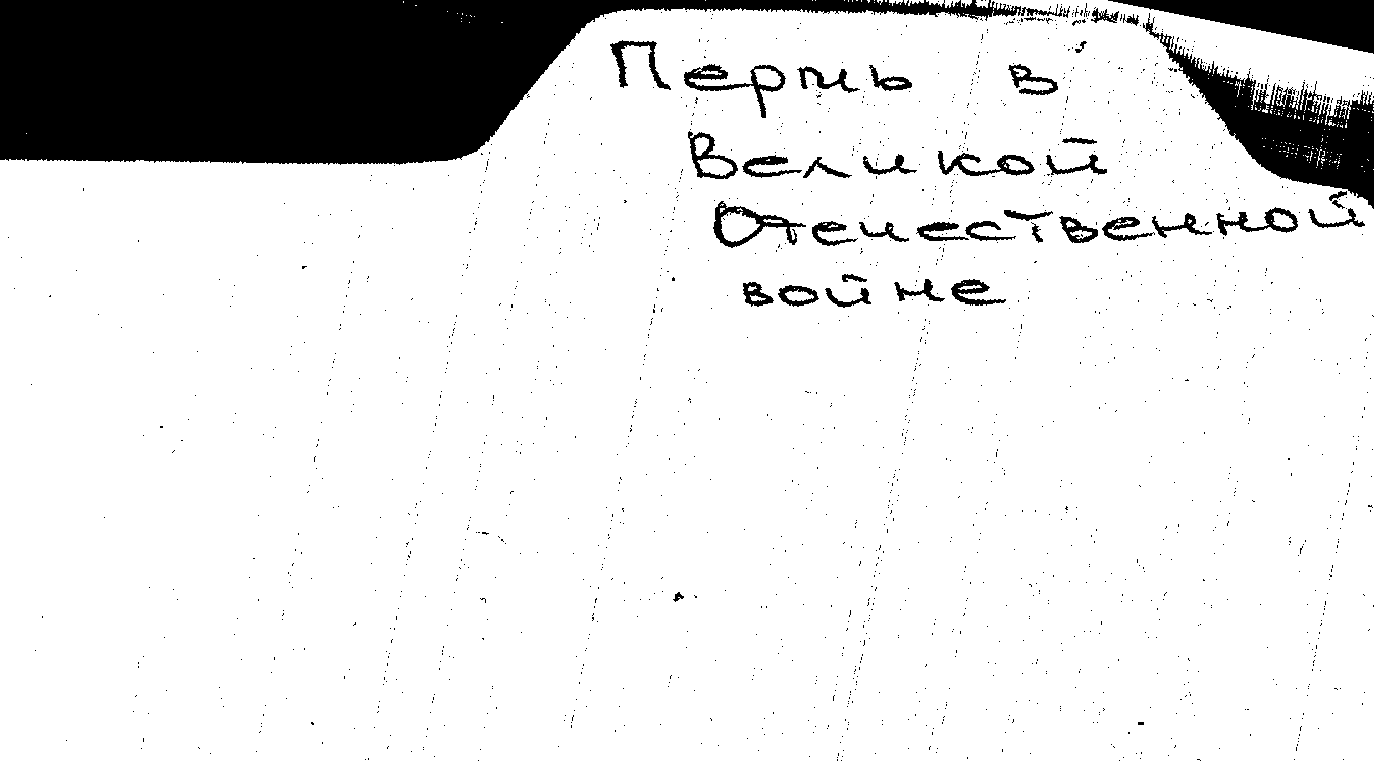 Пермь в
Великой
Отечественной
войне